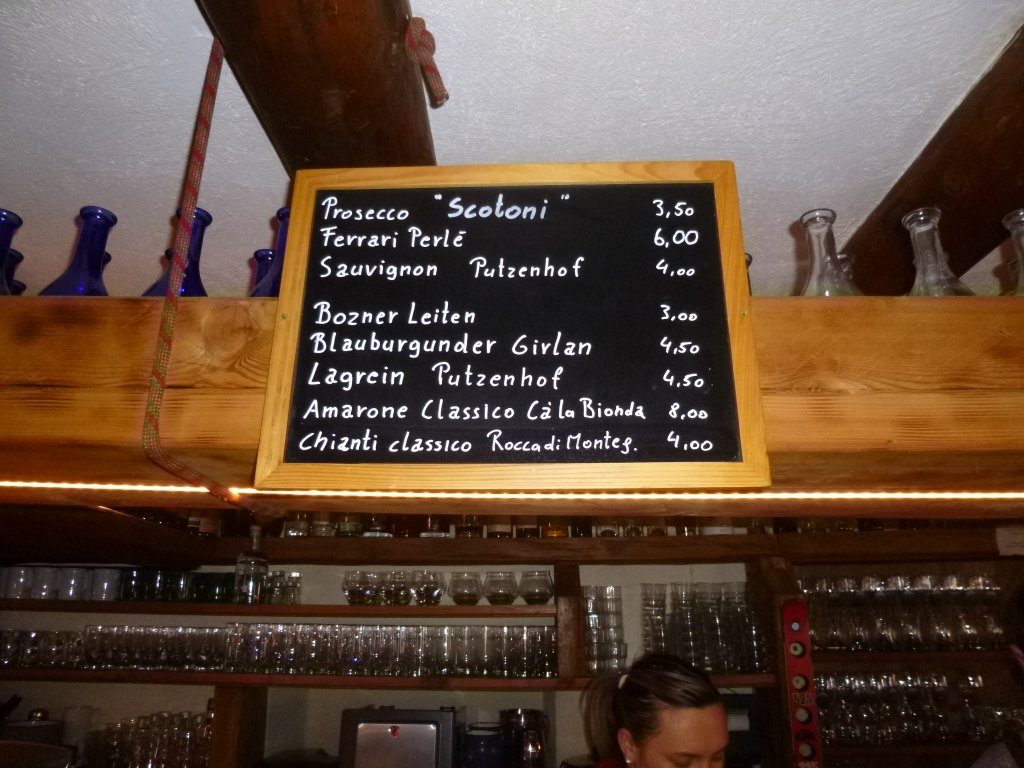 Prosecco "Scotoni" 3,50
Ferrari Perlē 6,00
Sauvignon Putzenhof 4,00
Bozner Leiten 3,00
Blauburgunder Girlan 4,50
Lagrein Putzenhof 4.50
Amarone Classico Cà la Bionda 8,00
Chianti classico Rocca di Monteg. 4,00